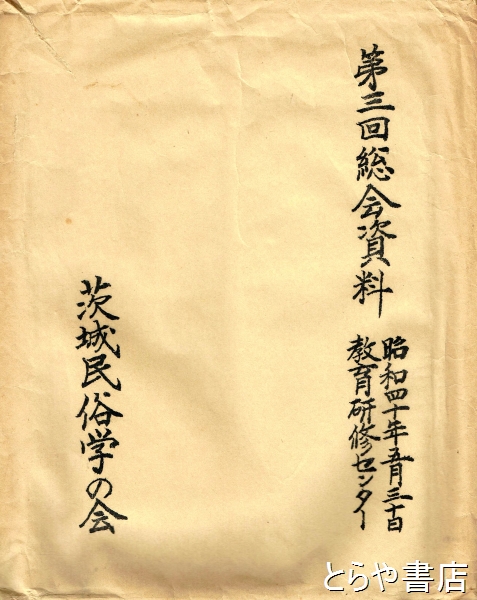 第三回総会資料
昭和四十年五月三十日
教育研修センター
茨城民俗学の会
とらや書店